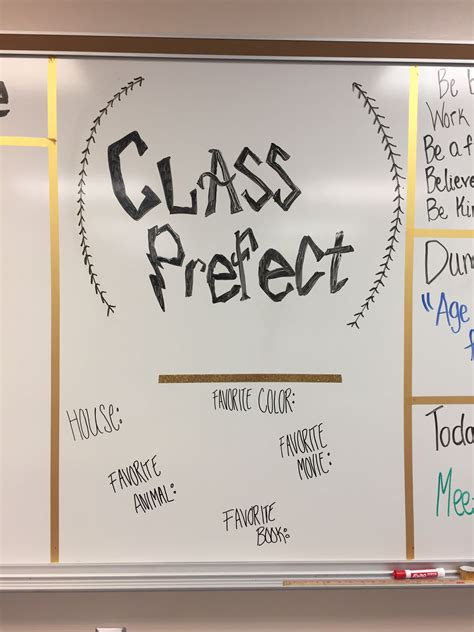 CLASS
Prefect
FAVORITE COLOR:
HOUSE:
FAVORITE
MOVIE:
FAVORITE
ANIMAL:
FAVORITE
BOOK:
Be
Work
Be a
Believe
Be Kin
"Age
Toda
Mee